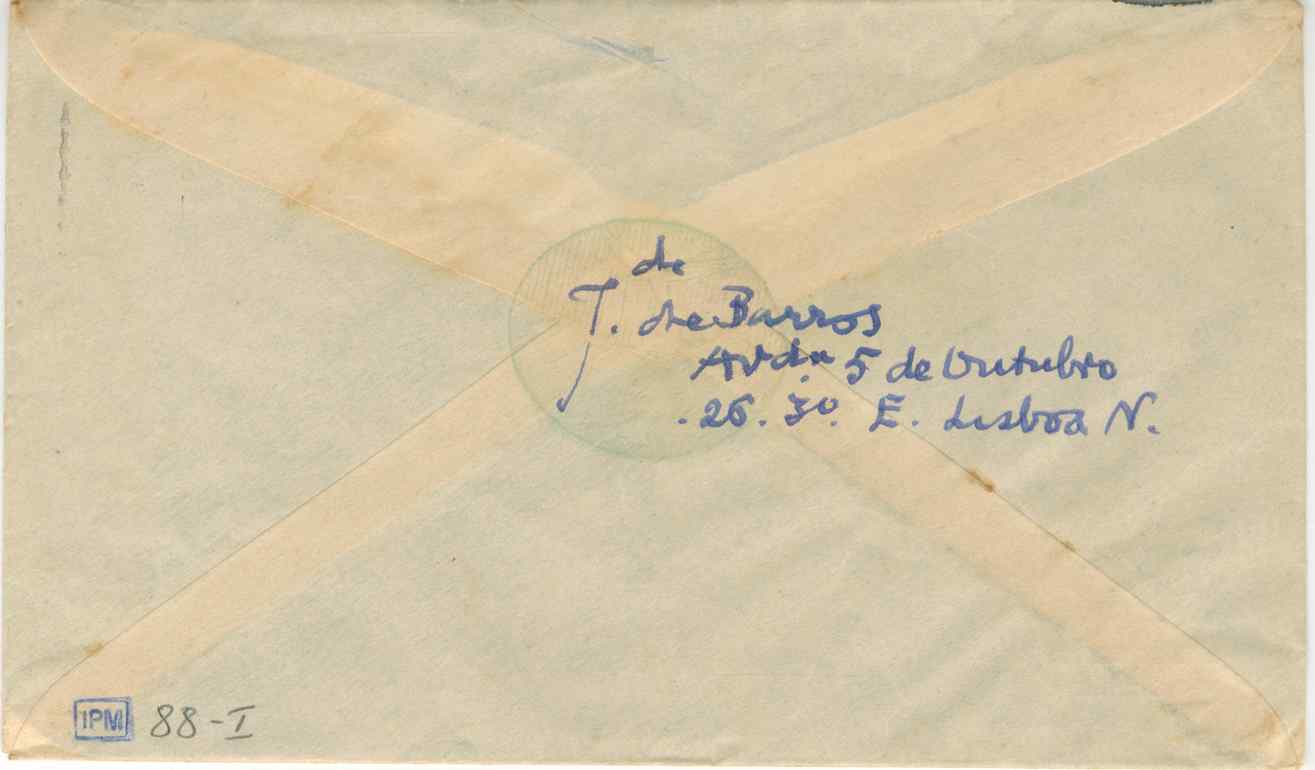 de
J. de Barros
Avda. 5 de Outubro
.26. 3º. E. Lisboa N.
IPM 88-I